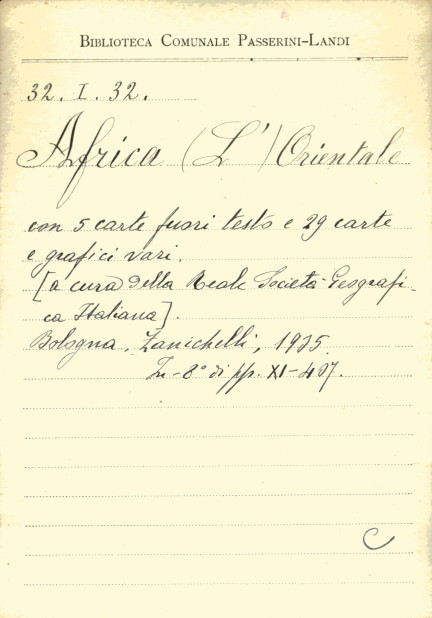 BIBLIOTECA COMUNALE PASSERINI-LANDI
32. I. 32.
Africa (L') Orientale
con 5 carte fuori testo e 29 carte
e grafici vari.
[a cura della Reale Società Geografi-
ca Italiana].
Bologna, Zanichelli, 1935.
In-8° di pp. XI-407.
C